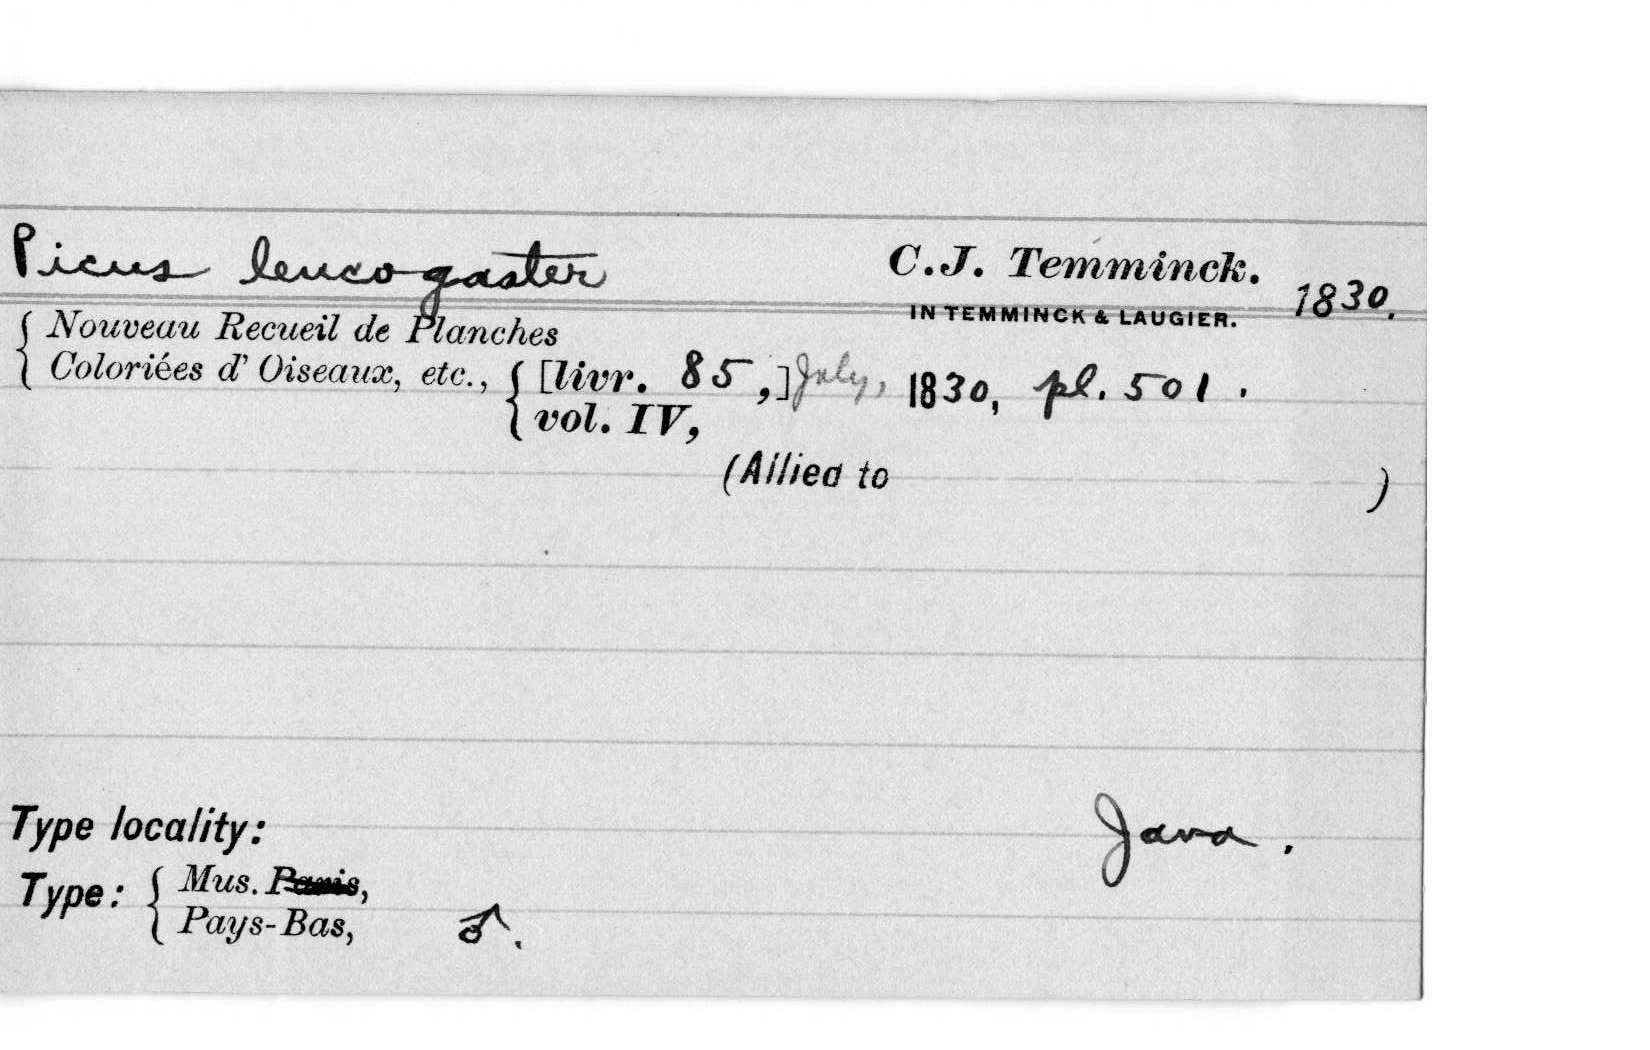 Picus leucogaster C.J. Temminck.
IN TEMMINCK & LAUGIER. 1830.
{ Nouveau Recueil de Planches
Coloriées d'Oiseaux, etc., { [livr. 85,] July, 1830, pl. 501.
vol. IV,
(Allied to )
Type locality: Java.
Type: { Mus. Paris,
Pays-Bas, ♂.